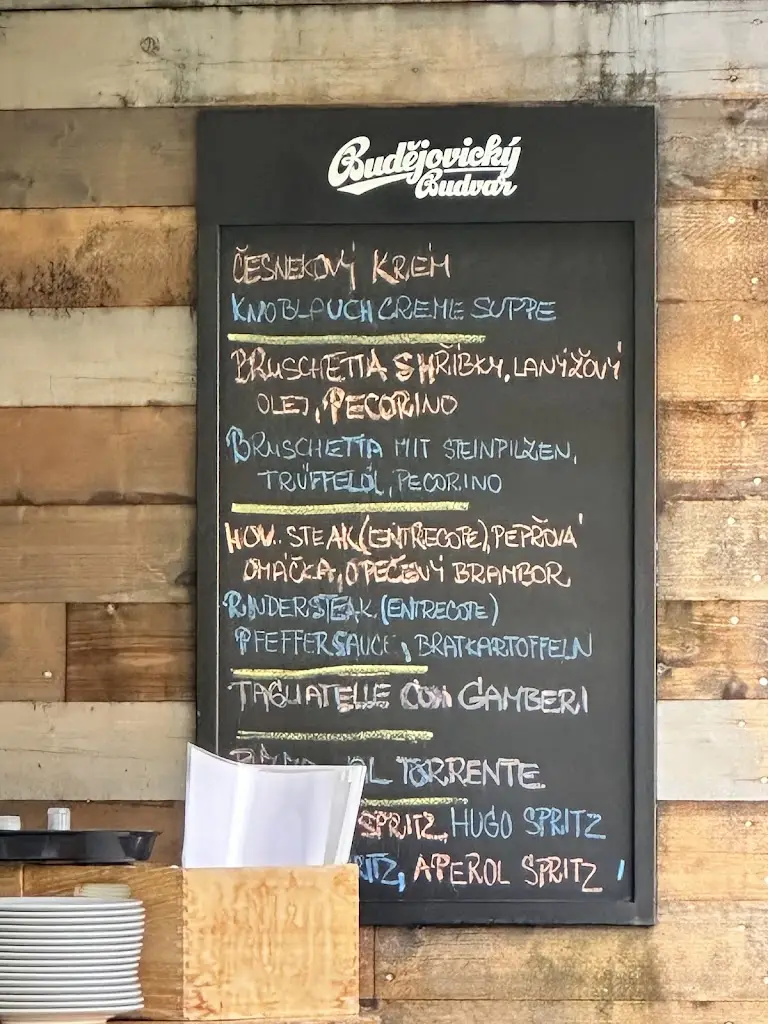 Budějovický
Budvar
ČESNEKOVÝ KRÉM
KNOBLAUCH CREME SUPPE
BRUSCHETTA S HŘÍBKY, LANÝŽOVÝ
OLEJ, PECORINO
BRUSCHETTA MIT STEINPILZEN,
TRÜFFELÖL, PECORINO
HOV. STEAK (ENTRECOTE), PEPŘOVÁ
OMÁČKA, OPEČENÝ BRAMBOR
RINDERSTEAK (ENTRECOTE)
PFEFFERSAUCE, BRATKARTOFFELN
TAGLIATELLE CON GAMBERI
AL TORRENTE
SPRITZ, HUGO SPRITZ
APEROL SPRITZ